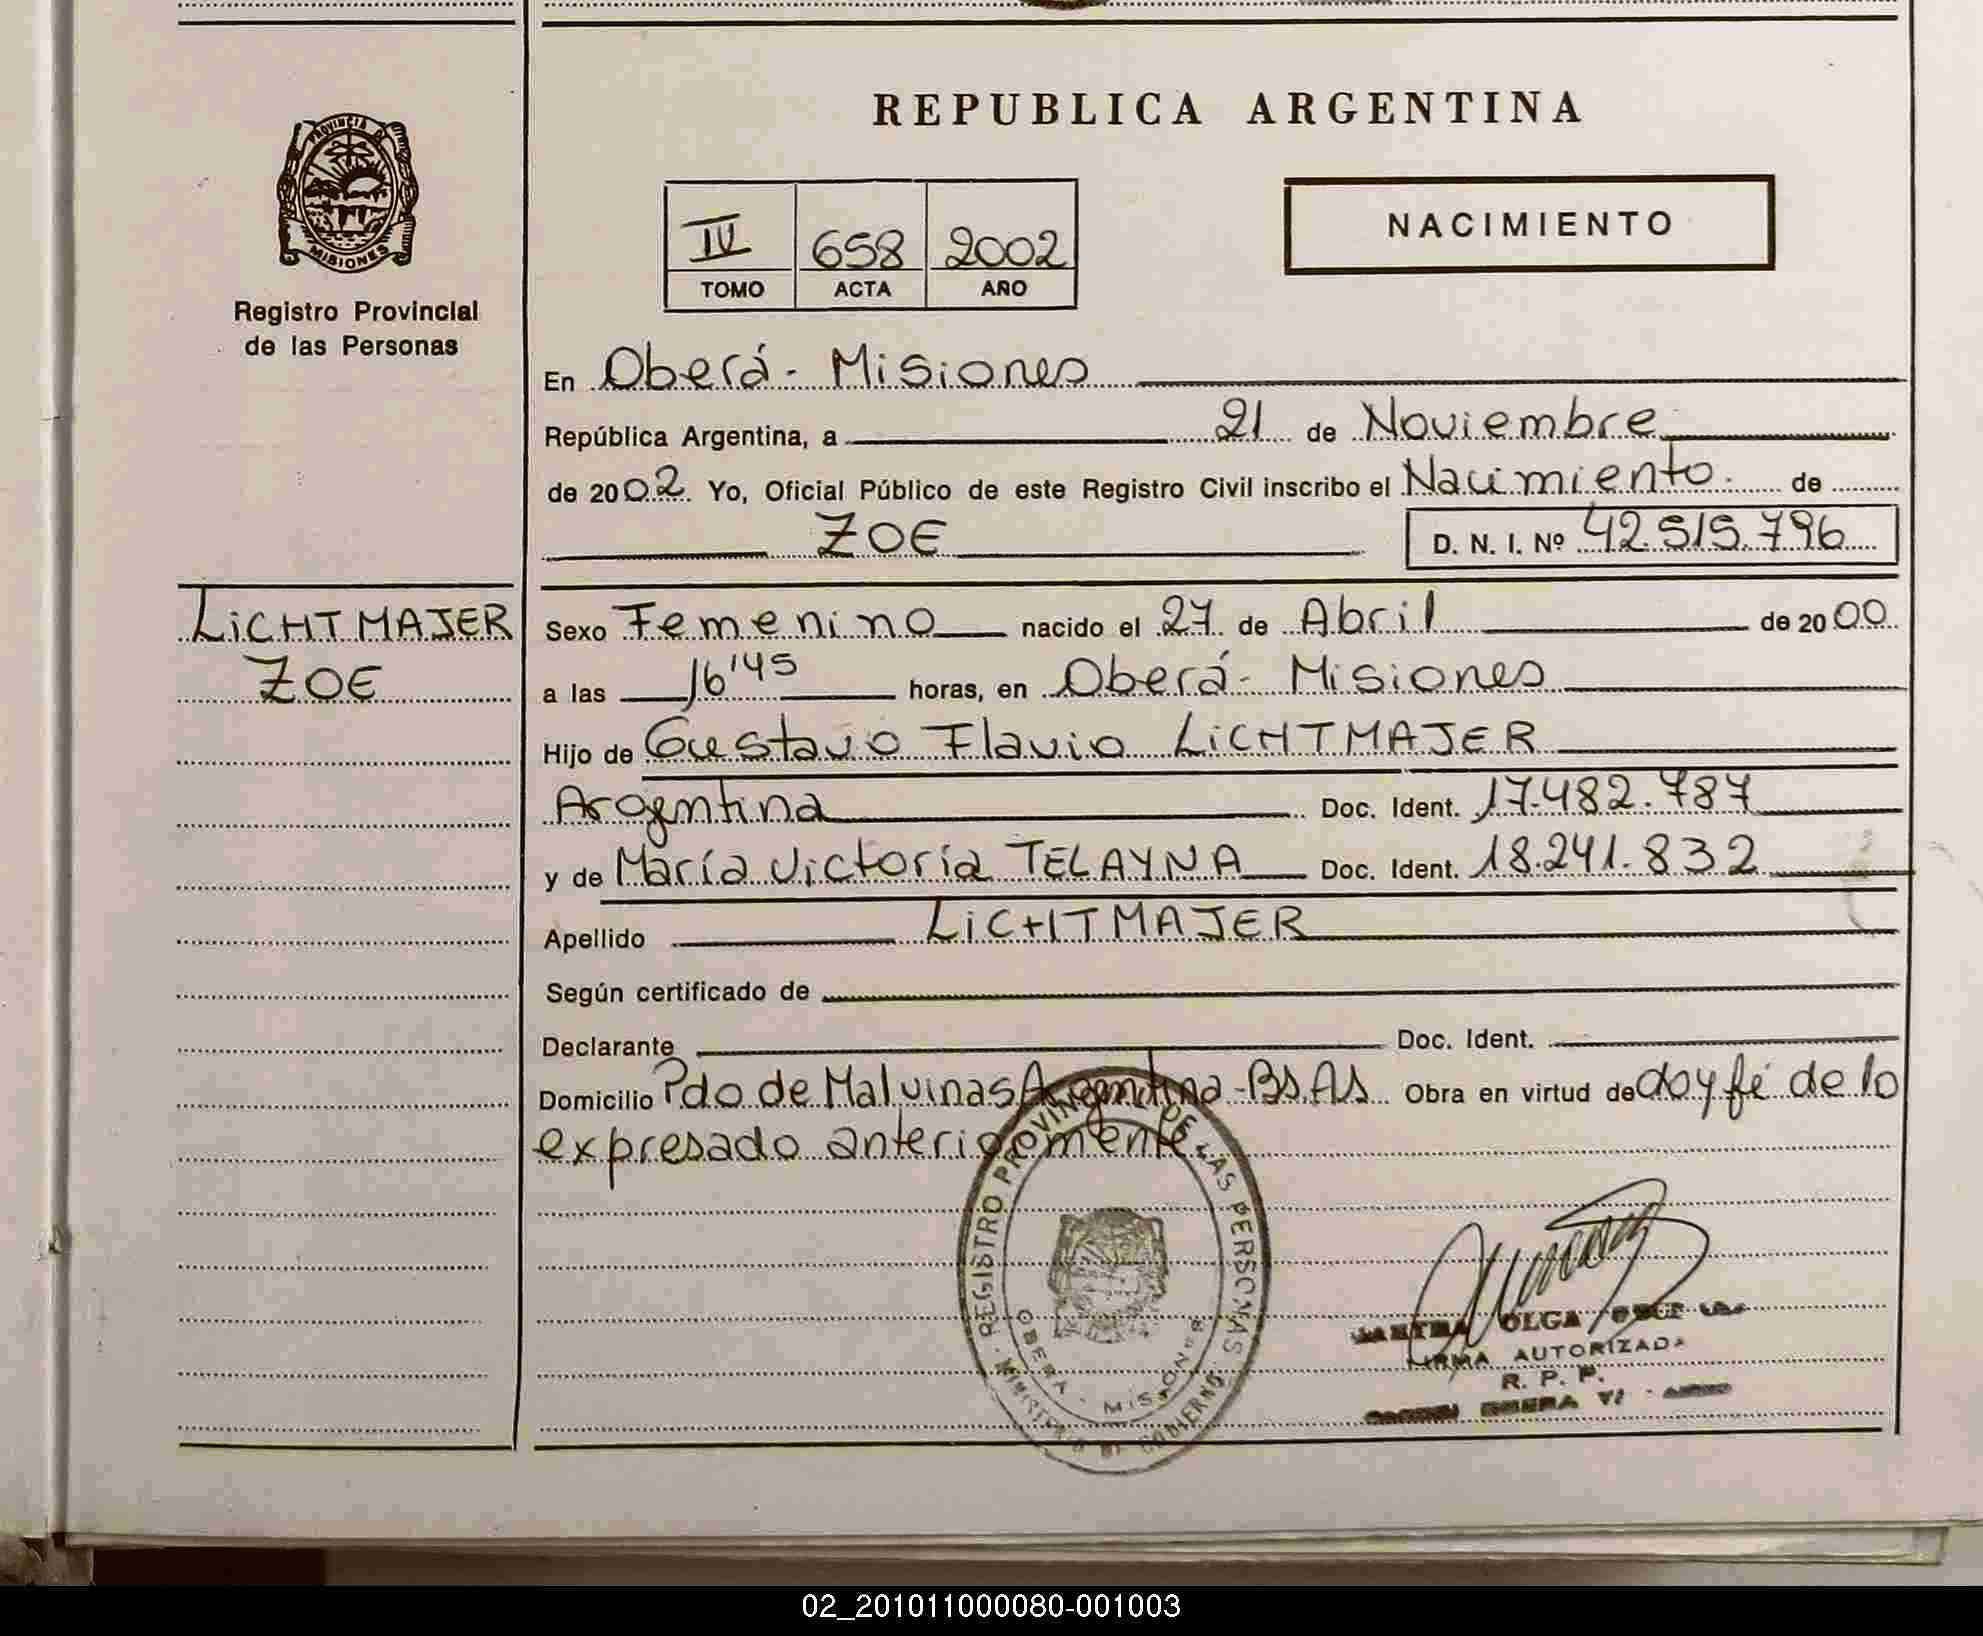 REPUBLICA ARGENTINA
PROVINCIA DE
MISIONES
Registro Provincial
de las Personas
IV 658 2002
TOMO ACTA AÑO
NACIMIENTO
En Oberá - Misiones
República Argentina, a 21 de Noviembre
de 2002. Yo, Oficial Público de este Registro Civil inscribo el Nacimiento de
ZOE D. N. I. Nº 42.515.796
LiCHTMAJER
ZOE
Sexo Femenino nacido el 27 de Abril de 2000
a las 16'45 horas, en Oberá - Misiones
Hijo de Gustavo Flavio LiCHTMAJER
Argentina Doc. Ident. 17.482.787
y de María Victoria TELAYNA Doc. Ident. 18.241.832
Apellido LiCHTMAJER
Según certificado de
Declarante Doc. Ident.
Domicilio Pdo de Malvinas Argentina - BS.AS Obra en virtud de doy fé de lo
expresado anteriormente.
REGISTRO PROVINCIAL DE LAS PERSONAS
MINISTERIO DE GOBIERNO
OBERA - MISIONES
OLGA
FIRMA AUTORIZADA
R. P. P.
OBERA
02_201011000080-001003